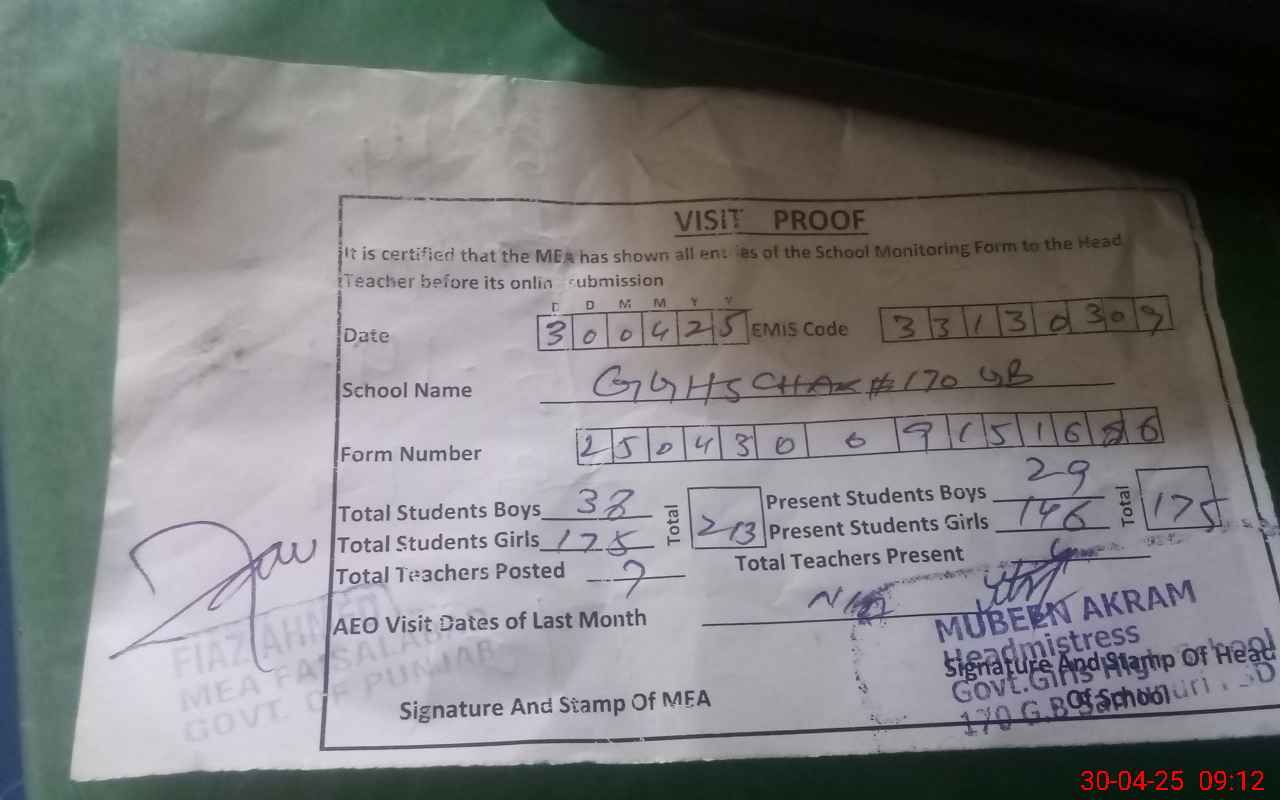 VISIT PROOF
It is certified that the MEA has shown all entries of the School Monitoring Form to the Head
Teacher before its online submission
D D M M Y Y
Date 300425 EMIS Code 33130309
School Name GGHS CHAK # 170 GB
Form Number 25043009151686
Total Students Boys 38 Total 213 Present Students Boys 29 Total 175
Total Students Girls 175 Present Students Girls 146
Total Teachers Posted 7 Total Teachers Present
AEO Visit Dates of Last Month
FIAZ AHMED
MEA FAISALABAD
GOVT. OF PUNJAB
Signature And Stamp Of MEA
MUBEEN AKRAM
Headmistress
Govt. Girls High School
170 G.B
Signature And Stamp Of Head
Of School
30-04-25 09:12